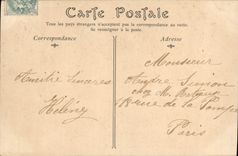 Carte Postale
Tous les pays étrangers n'acceptent pas la correspondance au recto.
Se renseigner à la poste.
Correspondance
Adresse
Amitié sincères
Hélène
Monsieur
André Simon
chez M.
Rue de la Pompe
Paris